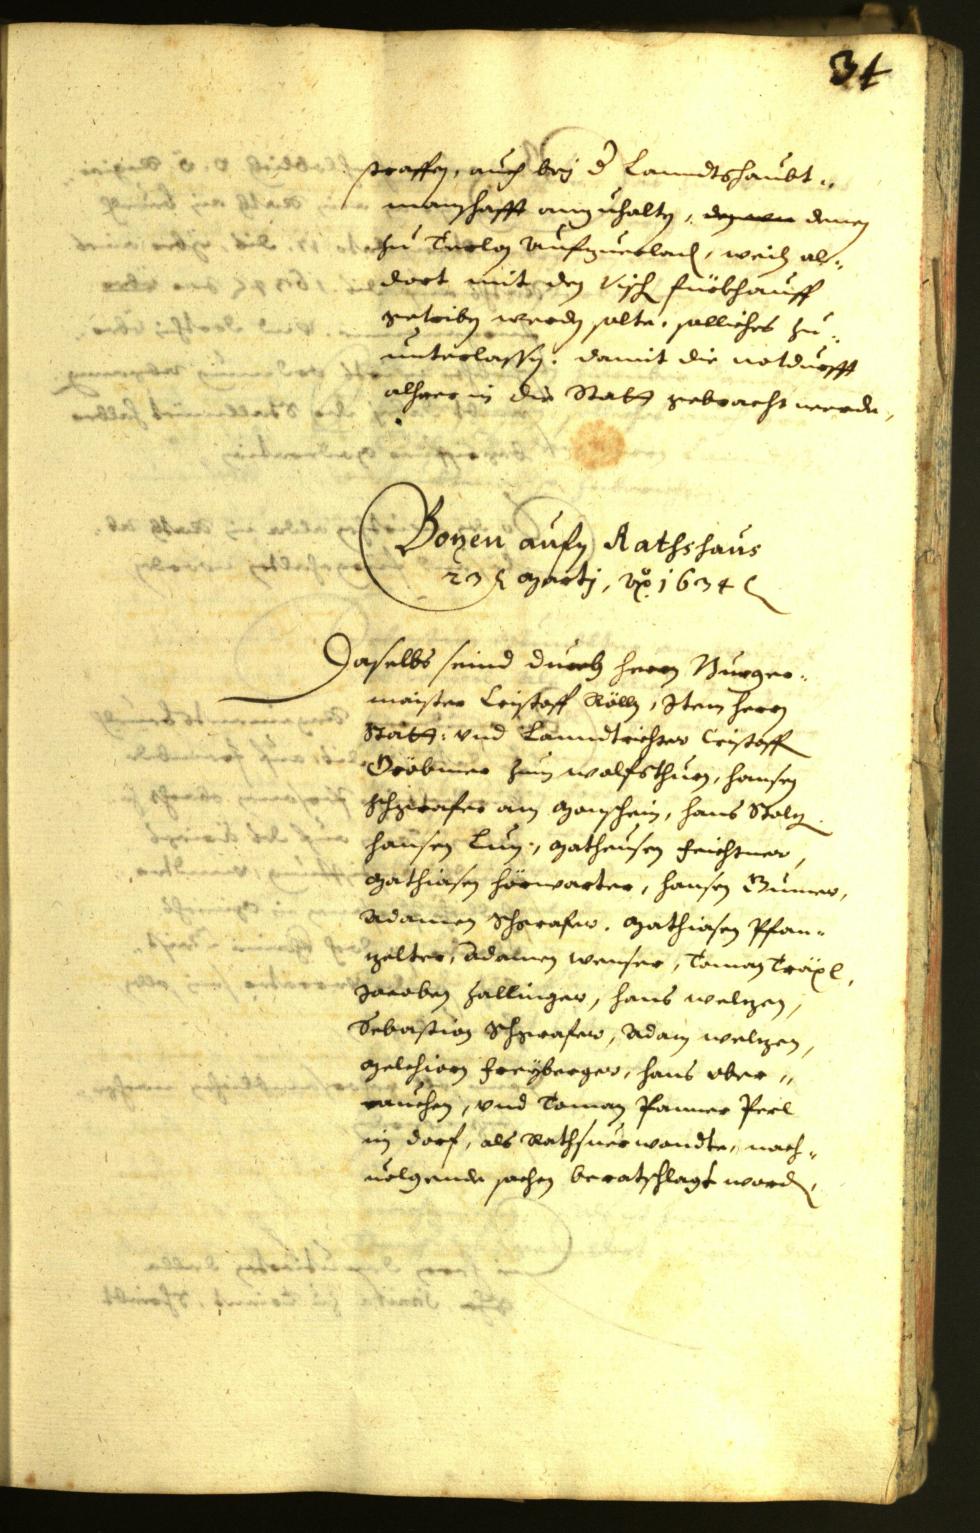 34
straffen, auch bey d Lanndtshaubt¬
manschafft anzuhalten, denen
zu Terlan aufzuerladen, weil al¬
dort mit den Visch fürkhauff
getriben werden solte, solliches zu
unterlassen, damit die notdurfft
alheer in die Statt gebracht werde,
Bozen aufn Rathshaus
23 Martj, Ao 1634
Daselbs seind durch herrn Burger¬
maister Cristoff Röll, Item herrn
Statt: und Lanndtrichter Cristoff
Gröbmer zum wolfsthurn, hansen
Schgrafer am Monschein, hans Stolz
hansen Lun, Matheusen Feichtner,
Mathiasen hörwarter, hansen Gumer,
Adamen Schgrafer, Mathiasen Pfan¬
zelter, Adamen wenser, Toman Träxl,
Jacoben Zallinger, hans welzen,
Sebastian Schgrafer, Adam welzen,
Melchiorn Freyberger, hans ober¬
rauchen, und Toman Perl
im dorf, als Rathsuerwondte, nach¬
uolgende sachen beratschlagt worden,